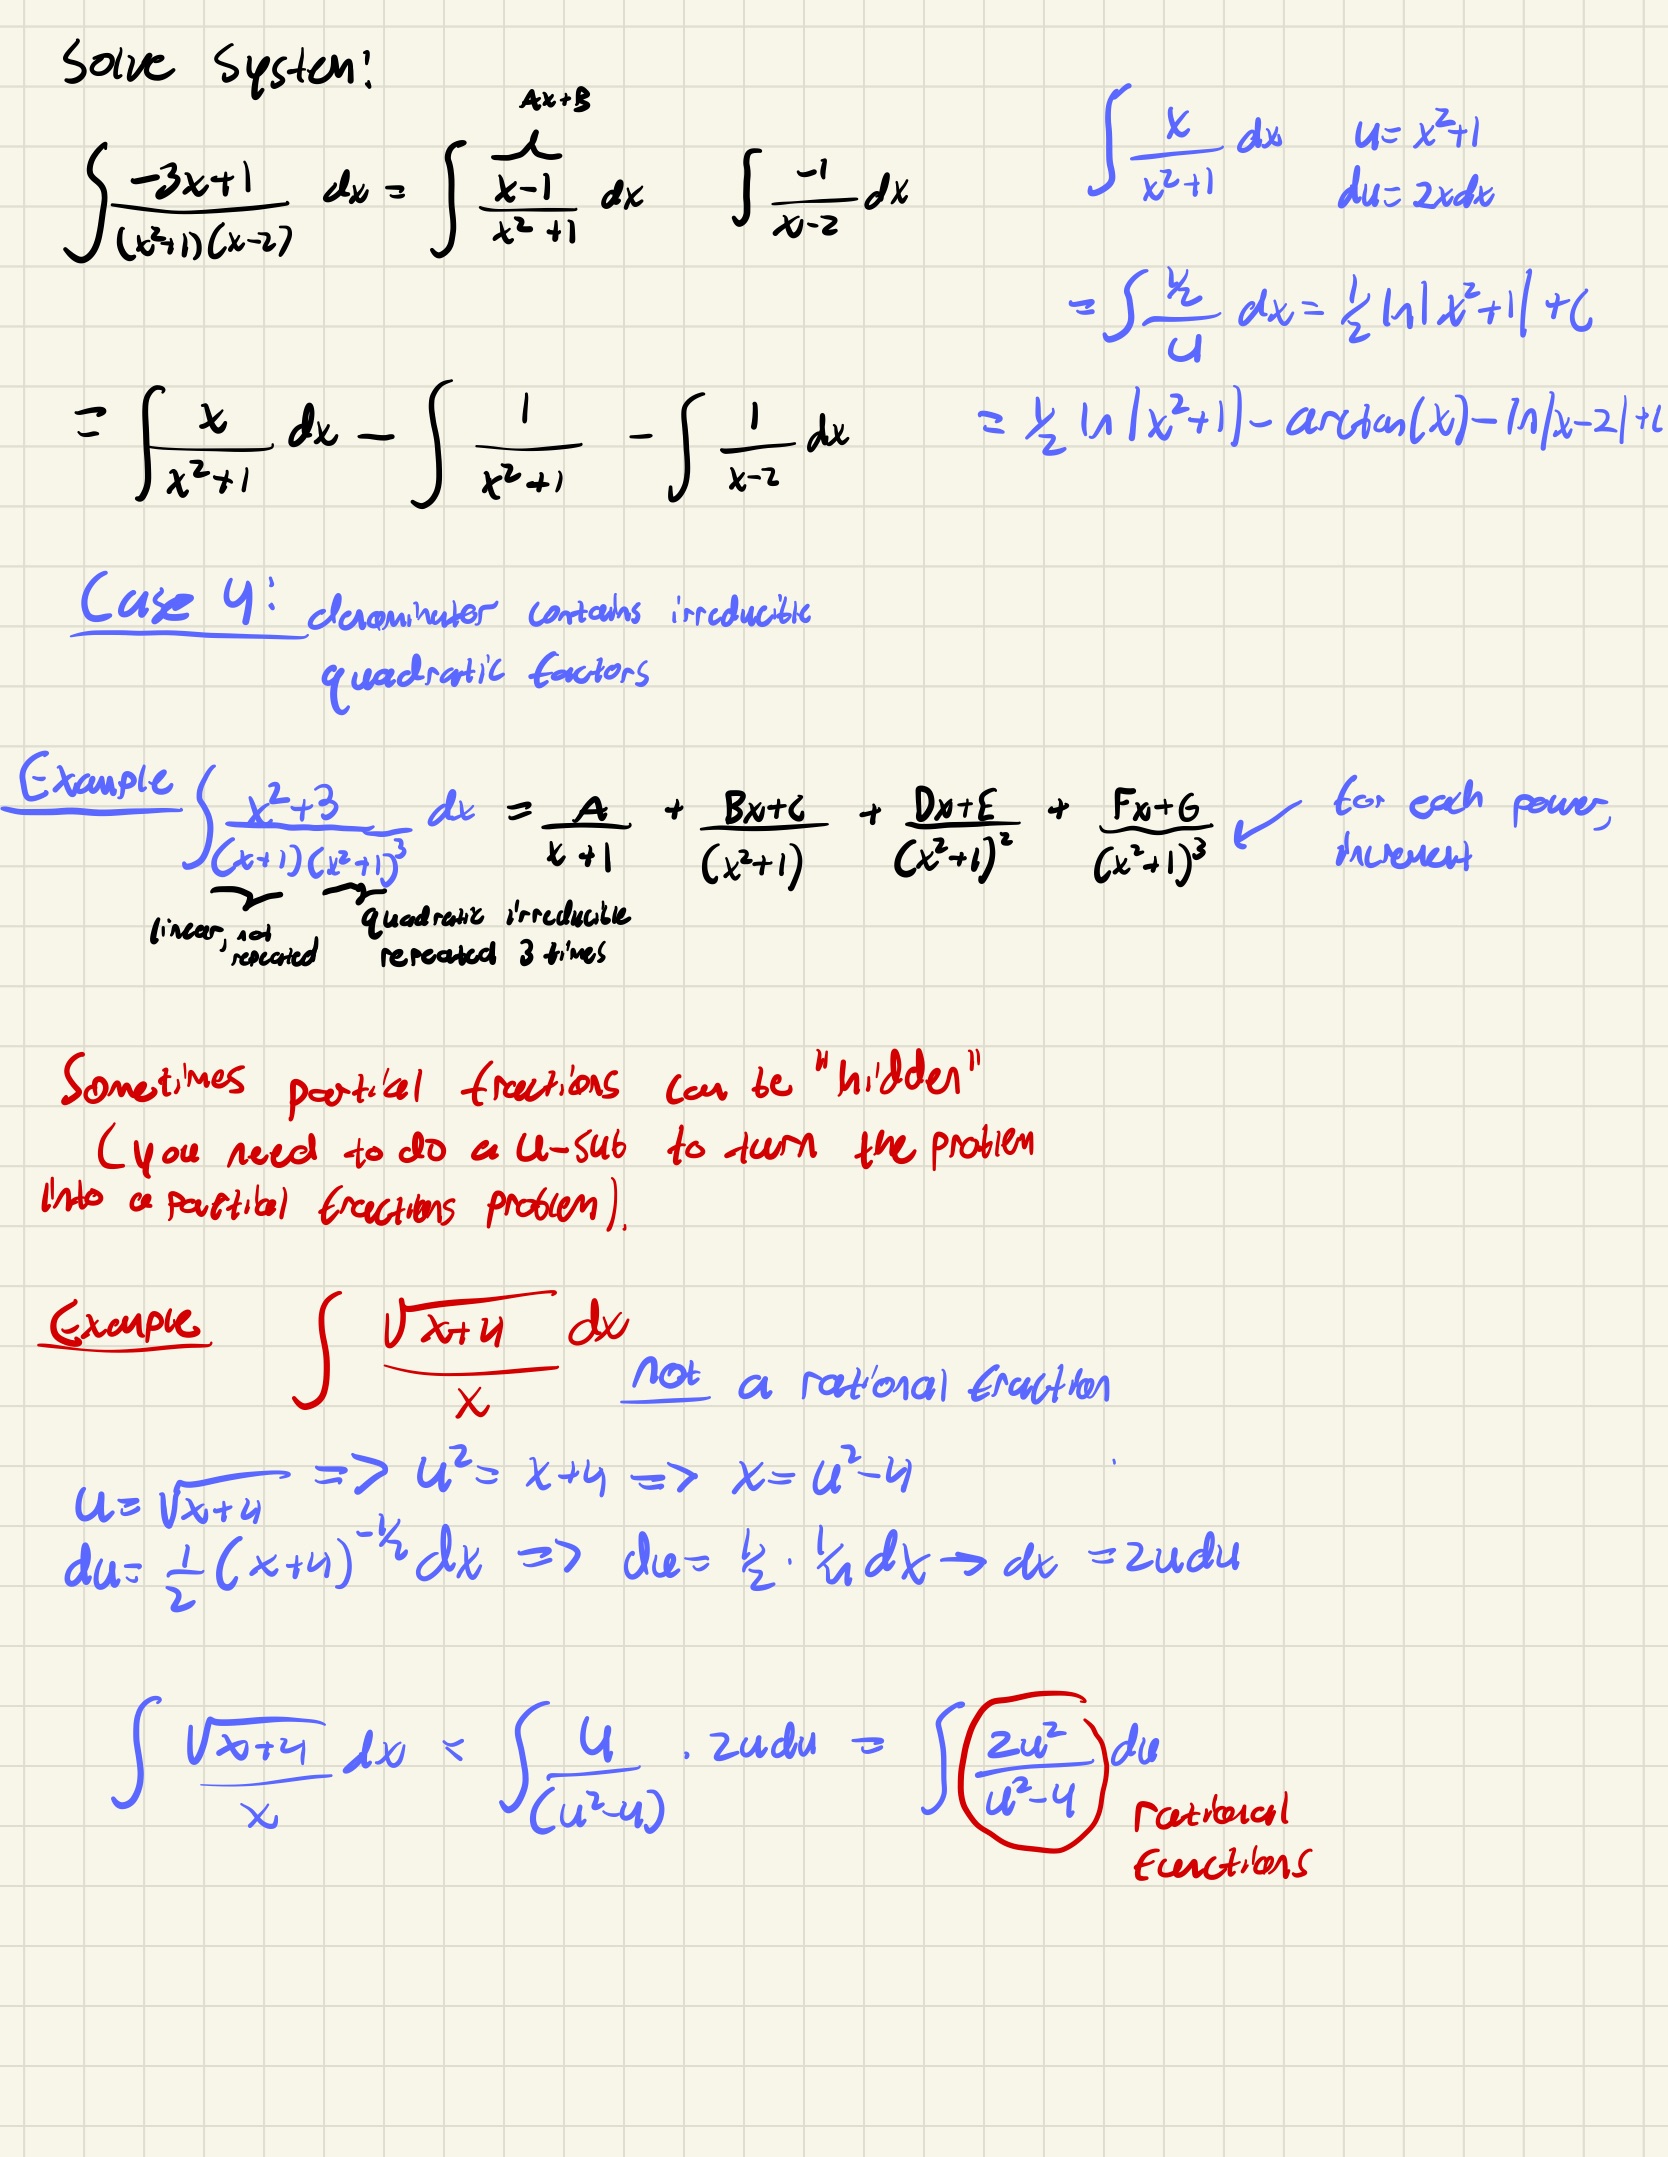 Solve System:
Ax+B
∫ (-3x+1)/((x²+1)(x-2)) dx = ∫ (x-1)/(x²+1) dx   ∫ -1/(x-2) dx
∫ x/(x²+1) dx   u = x²+1
du = 2xdx
= ∫ (1/2)/u dx = 1/2 ln|x²+1| + C
= ∫ x/(x²+1) dx - ∫ 1/(x²+1) - ∫ 1/(x-2) dx
= 1/2 ln|x²+1| - arctan(x) - ln|x-2| + C
Case 4: denominator contains irreducible
quadratic factors
Example ∫ (x²+3)/((x+1)(x²+1)³) dx = A/(x+1) + (Bx+C)/(x²+1) + (Dx+E)/(x²+1)² + (Fx+G)/(x²+1)³
for each power,
increment
linear, not
repeated
quadratic irreducible
repeated 3 times
Sometimes partical fractions can be "hidden"
(you need to do a u-sub to turn the problem
into a partical fractions problem).
Example ∫ √(x+4)/x dx
not a rational fraction
u = √(x+4) => u² = x+4 => x = u²-4
du = 1/2 (x+4)^(-1/2) dx => du = 1/2 · 1/u dx → dx = 2udu
∫ √(x+4)/x dx = ∫ u/(u²-4) · 2udu = ∫ 2u²/(u²-4) du
rational
functions